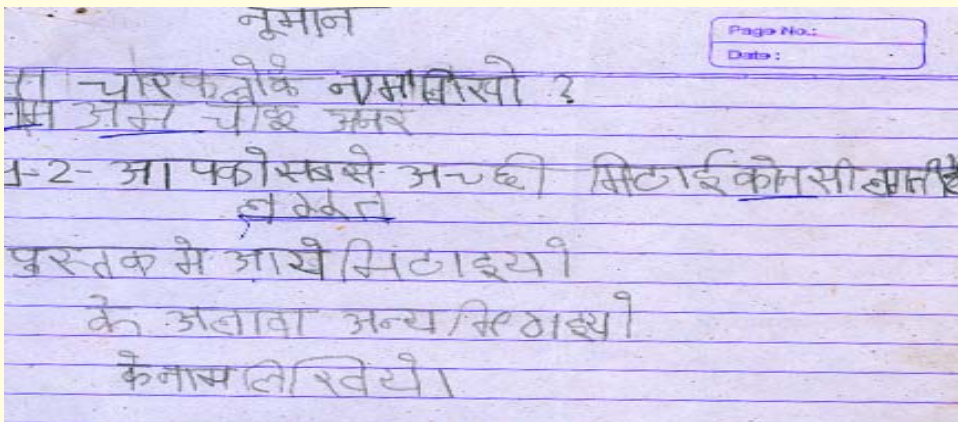 नूमान
Page No.:
Date :
चार फलो के नाम लिखो ?
आम
2- आपको सबसे अच्छी मिठाई कोनसी लगती है
पुस्तक मे आये मिठाइयो
के अलावा अन्य मिठाइयो
के नाम लिखिये।